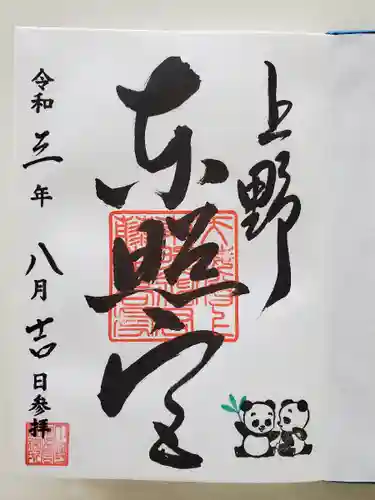 上野
東照宮
令和三年八月吉日参拝